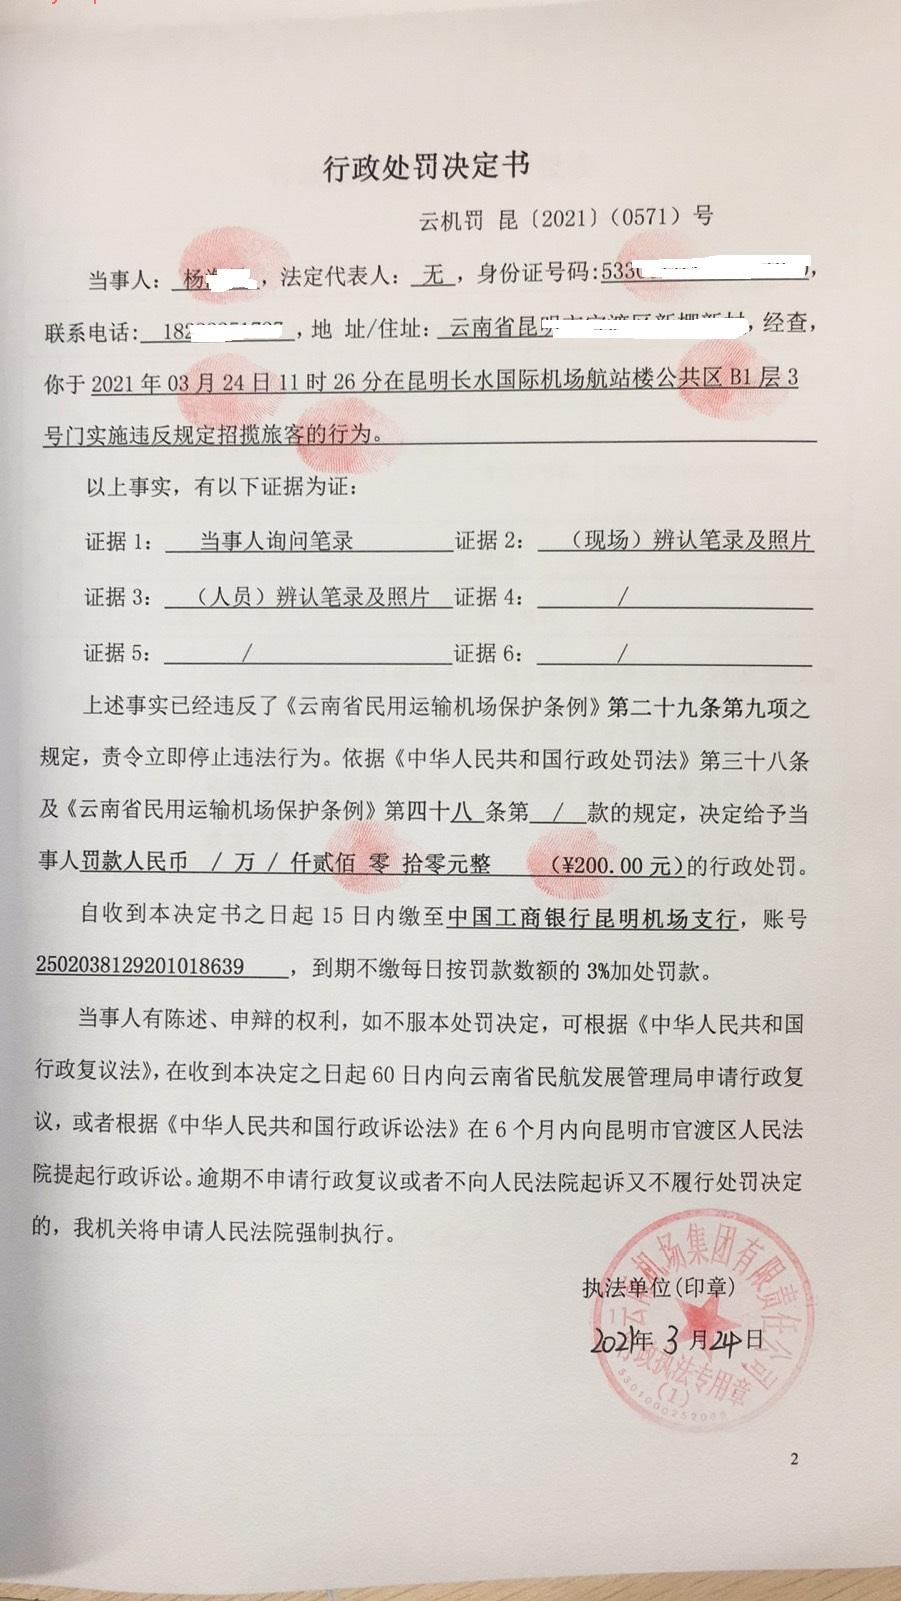 行政处罚决定书
云机罚 昆〔2021〕（0571）号
当事人： 杨 ，法定代表人： 无 ，身份证号码:533 ，
联系电话: 182 ，地 址/住址： 云南省昆 ，经查，
你于 2021 年 03 月 24 日 11 时 26 分在昆明长水国际机场航站楼公共区 B1 层 3
号门实施违反规定招揽旅客的行为。
以上事实，有以下证据为证：
证据 1： 当事人询问笔录 证据 2： （现场）辨认笔录及照片
证据 3： （人员）辨认笔录及照片 证据 4： /
证据 5： / 证据 6： /
上述事实已经违反了《云南省民用运输机场保护条例》第二十九条第九项之
规定，责令立即停止违法行为。依据《中华人民共和国行政处罚法》第三十八条
及《云南省民用运输机场保护条例》第四十八 条第 / 款的规定，决定给予当
事人罚款人民币 / 万 / 仟贰佰 零 拾零元整 （¥200.00 元）的行政处罚。
自收到本决定书之日起 15 日内缴至中国工商银行昆明机场支行，账号
2502038129201018639 ，到期不缴每日按罚款数额的 3%加处罚款。
当事人有陈述、申辩的权利，如不服本处罚决定，可根据《中华人民共和国
行政复议法》，在收到本决定之日起 60 日内向云南省民航发展管理局申请行政复
议，或者根据《中华人民共和国行政诉讼法》在 6 个月内向昆明市官渡区人民法
院提起行政诉讼。逾期不申请行政复议或者不向人民法院起诉又不履行处罚决定
的，我机关将申请人民法院强制执行。
云南机场集团有限责任公司
执法单位(印章)
2021年 3 月 24 日
行政执法专用章
（1）
2